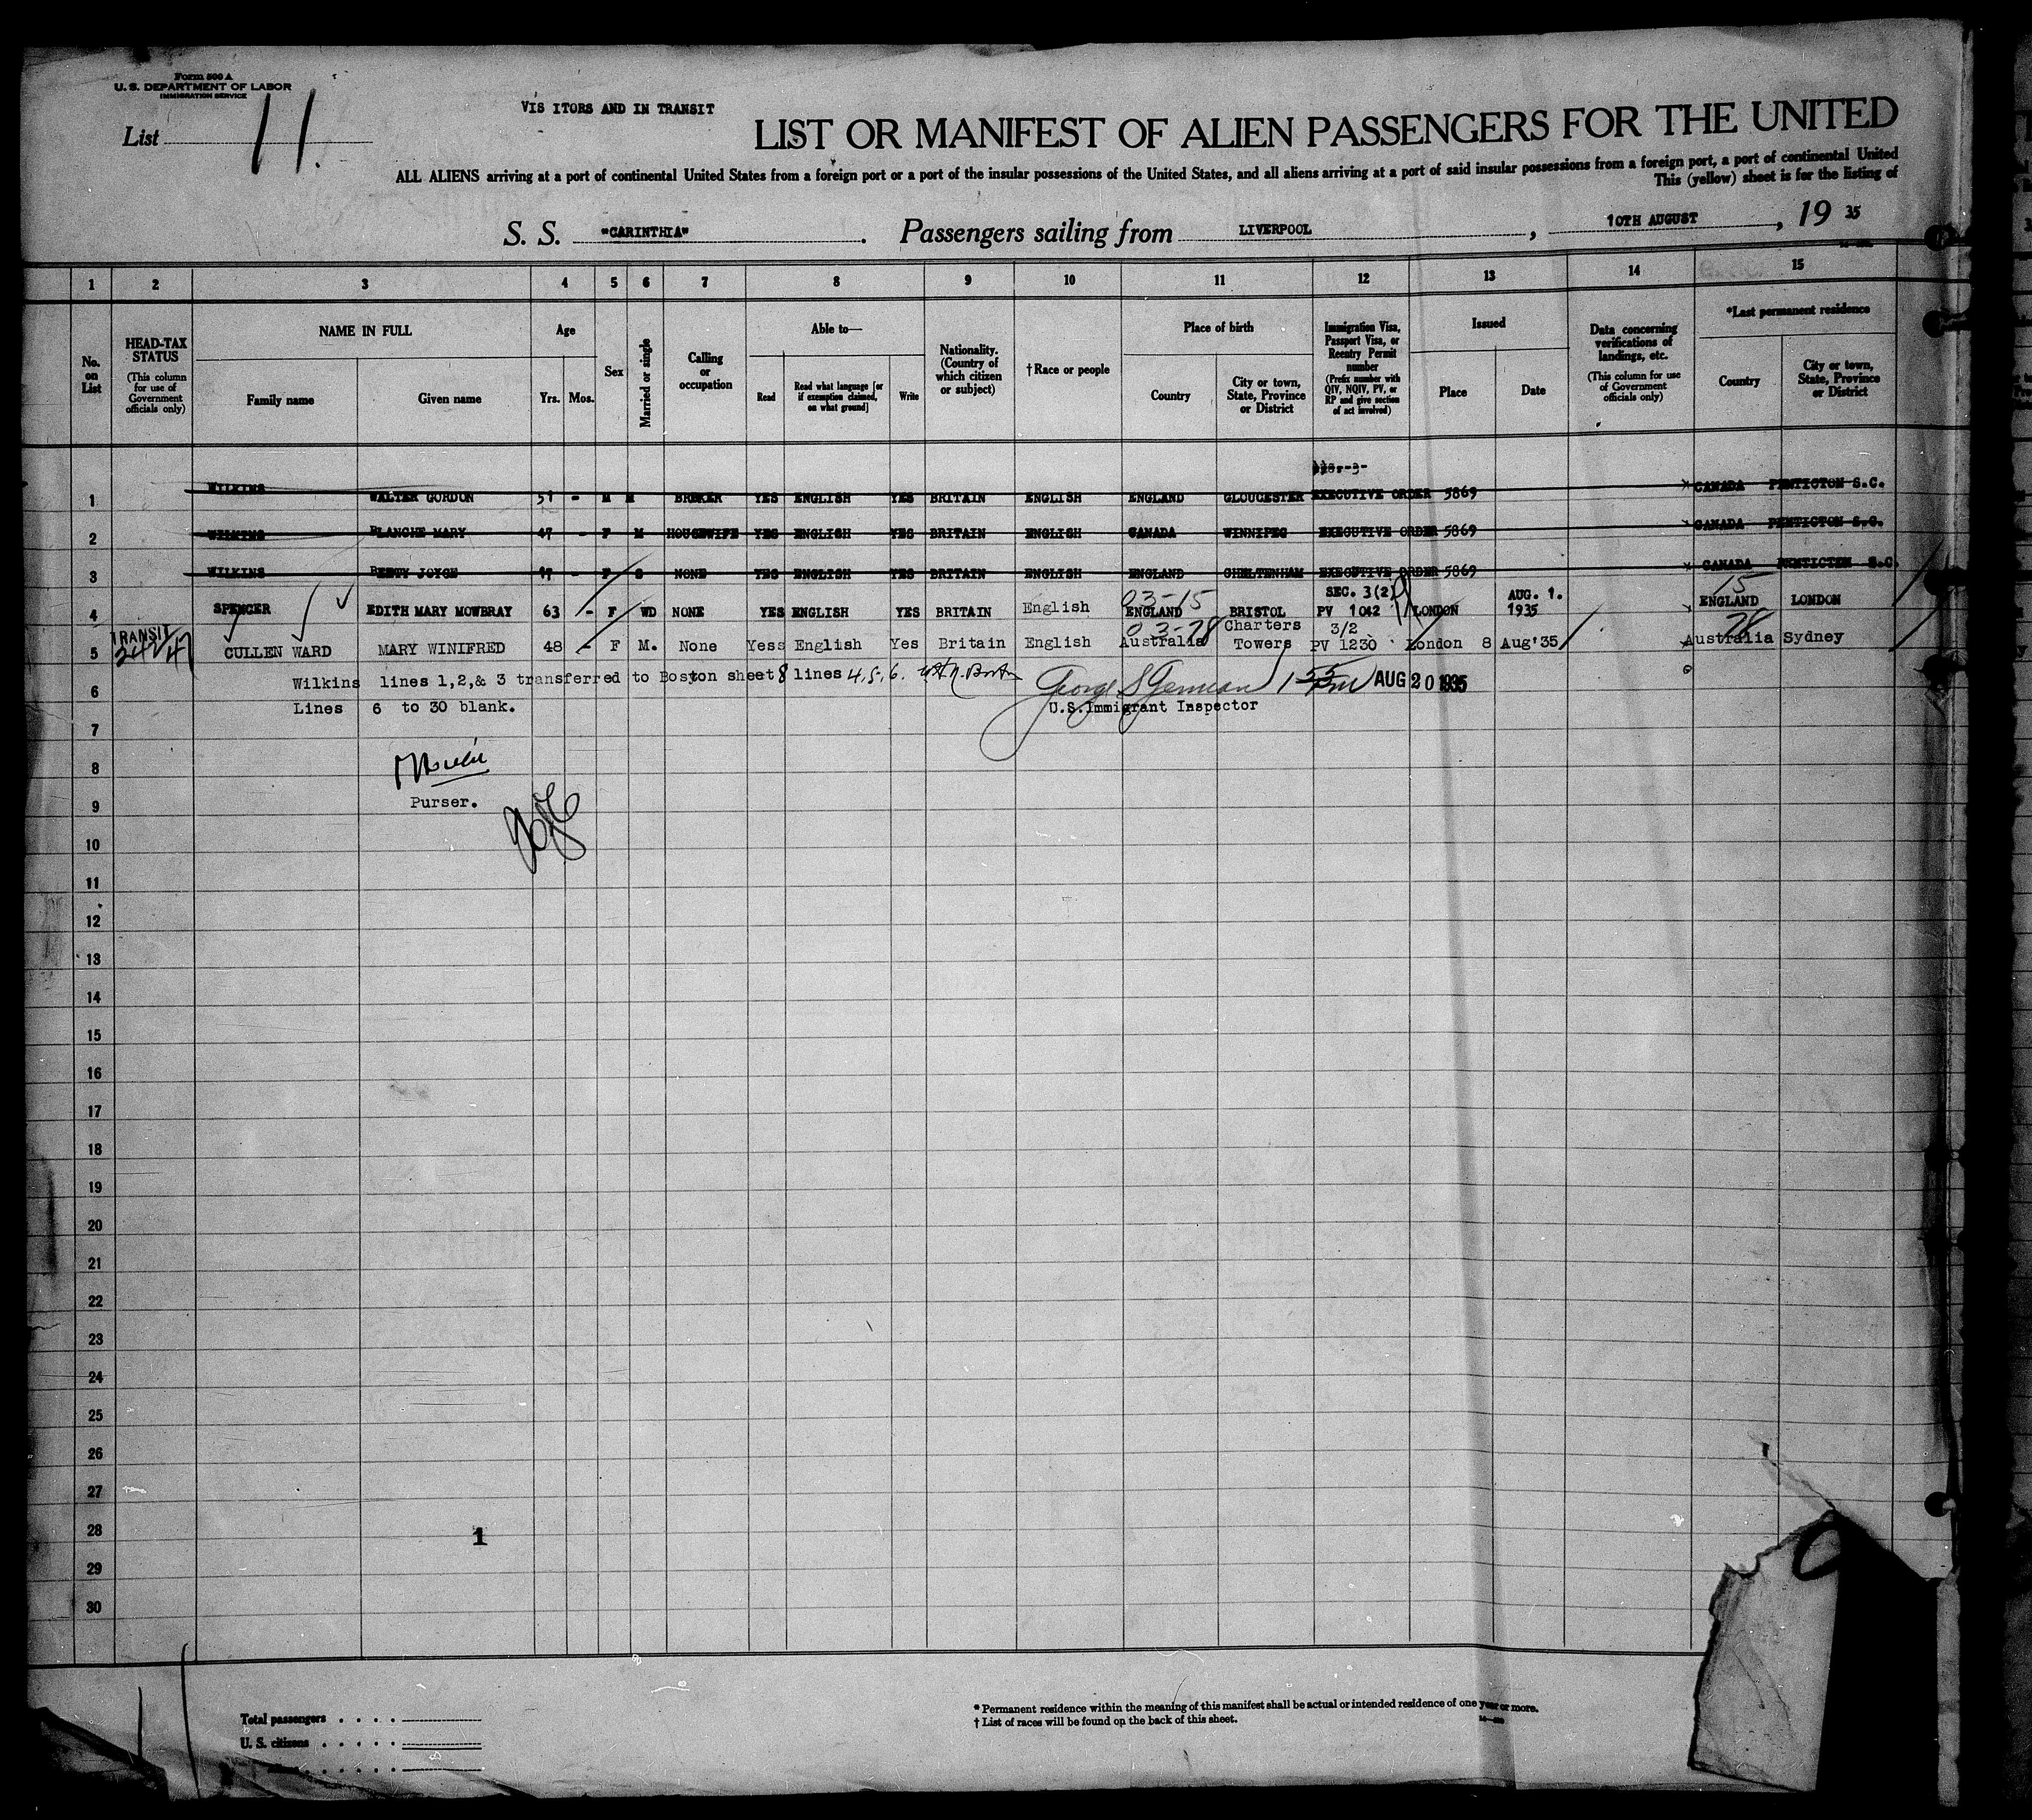 Form 500 A
U. S. DEPARTMENT OF LABOR
IMMIGRATION SERVICE
List 11.
VIS ITORS AND IN TRANSIT
LIST OR MANIFEST OF ALIEN PASSENGERS FOR THE UNITED
ALL ALIENS arriving at a port of continental United States from a foreign port or a port of the insular possessions of the United States, and all aliens arriving at a port of said insular possessions from a foreign port, a port of continental United
This (yellow) sheet is for the listing of
S. S. "CARINTHIA". Passengers sailing from LIVERPOOL, 10TH AUGUST, 19 35
1 2 3 4 5 6 7 8 9 10 11 12 13 14 15
No. on List
HEAD-TAX STATUS (This column for use of Government officials only)
NAME IN FULL
Family name
Given name
Age
Yrs. Mos.
Sex
Married or single
Calling or occupation
Able to—
Read
Read what language [or if exemption claimed, on what ground]
Write
Nationality. (Country of which citizen or subject)
†Race or people
Place of birth
Country
City or town, State, Province or District
Immigration Visa, Passport Visa, or Reentry Permit number (Prefix number with QIV, NQIV, PV, or RP and give section of act involved)
Issued
Place
Date
Data concerning verifications of landings, etc. (This column for use of Government officials only)
*Last permanent residence
Country
City or town, State, Province or District
1 WILKINS WALTER GORDON 51 - M M BROKER YES ENGLISH YES BRITAIN ENGLISH ENGLAND GLOUCESTER EXECUTIVE ORDER 5869 CANADA PENTICTON S.C.
2 WILKINS BLANCHE MARY 47 - F M HOUSEWIFE YES ENGLISH YES BRITAIN ENGLISH CANADA WINNIPEG EXECUTIVE ORDER 5869 CANADA PENTICTON S.C.
3 WILKINS BETTY JOYCE 17 - F S NONE YES ENGLISH YES BRITAIN ENGLISH ENGLAND CHELTENHAM EXECUTIVE ORDER 5869 CANADA PENTICTON S.C.
03-15 SEC. 3(2) AUG. 1. 15
4 SPENCER EDITH MARY MOWBRAY 63 - F WD NONE YES ENGLISH YES BRITAIN English ENGLAND BRISTOL PV 1042 LONDON 1935 ENGLAND LONDON
TRANSIT 03-28 Charters 3/2 28
5 CULLEN WARD MARY WINIFRED 48 - F M. None Yess English Yes Britain English Australia Towers PV 1230 London 8 Aug'35 Australia Sydney
6 Wilkins lines 1,2,& 3 transferred to Boston sheet 8 lines 4,5,6. George S AUG 20 1935
Lines 6 to 30 blank. U.S.Immigrant Inspector
7
8
9 Purser.
10
11
12
13
14
15
16
17
18
19
20
21
22
23
24
25
26
27
28 1
29
30
Total passengers . . . .
U. S. citizens . . . . .
* Permanent residence within the meaning of this manifest shall be actual or intended residence of one year or more.
† List of races will be found on the back of this sheet.